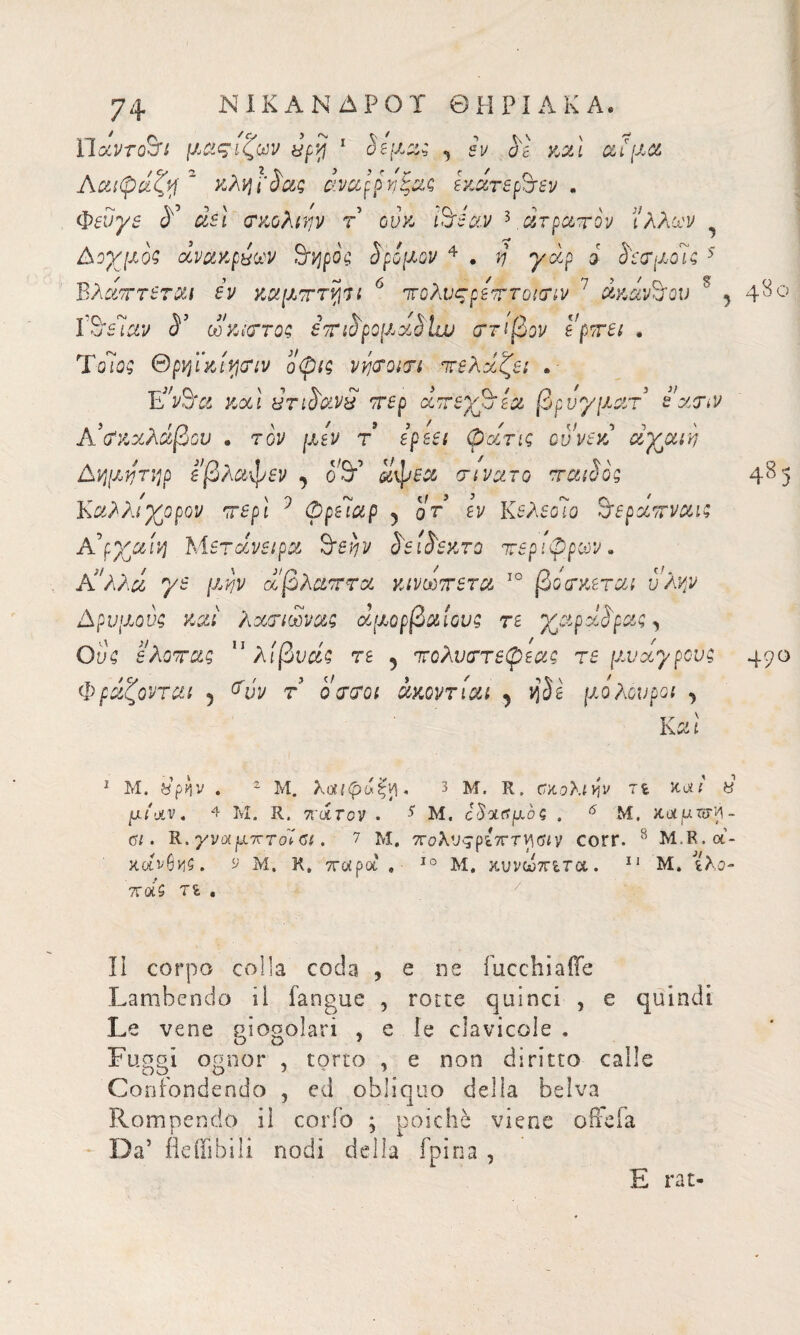 74 ΝΙΚΑΝΔΡΟΥ ΘΗΡΙΑΚΑ.
Πάντοθι μαςίζων ȣ̓ρῇ ¹ δέμας , ἐν δὲ καὶ αἷμα
Λαιφάζῃ ² κληῖδας ἀναρρήξας ἑκάτερθεν .
Φεῦγε δ' ἀεὶ σκολιήν τ' οὐκ ἰθέαν ³ ἀτραπὸν ἴλλων ,
Δοχμὸς ἀνακρȣ́ων θηρὸς δρόμον ⁴ . ἦ γὰρ ὁ δεσμοῖς ⁵
Βλάπτεται ἐν καμπτῇσι ⁶ πολυςρέπτοισιν ⁷ ἀκάνθου ⁸ , 480
Ἰθεῖαν δ' ὤκιστος ἐπιδρομάδην στίβον ἕρπει .
Τοῖος Θρηϊκίησιν ὄφις νήσοισι πελάζει .
Ἔνθα καὶ ȣ̓τιδανȣ͂ περ ἀπεχθέα βρύγματ' ἔασιν
Ἀσκαλάβου . τὸν μέν τ' ἐρέει φάτις οὕνεκ' ἀχαιὴ
Δημήτηρ ἔβλαψεν , ὅθ' ἅψεα σίνατο παιδὸς 485
Καλλίχορον περὶ ⁹ φρεῖαρ , ὅτ' ἐν Κελεοῖο θεράπναις
Ἀρχαίη Μετάνειρα θεὴν δείδεκτο περίφρων .
Ἄλλά γε μὴν ἄβλαπτα κινώπετα ¹⁰ βόσκεται ὕλην
Δρυμοὺς καὶ λασιῶνας ἀμορβαίους τε χαράδρας ,
Οὓς ἔλοπας ¹¹ λίβυάς τε , πολυστεφέας τε μυάγρους 490
Φράζονται , σύν τ' ὅσσοι ἀκοντίαι , ἠδὲ μόλουροι ,
Καὶ
¹ M. ȣ̓ρὴν . ² M. λαιφάξῃ . ³ M. R. σκολιήν τε καὶ ȣ̓
μίαν . ⁴ M. R. πάτον . ⁵ M. ἐδασμὸς . ⁶ M. καμπτῆ-
σι . R. γναμπτοῖσι . ⁷ M. πολυςρέπτῃσιν corr. ⁸ M. R. ἀ-
κάνθης . ⁹ M. R. παρὰ . ¹⁰ M. κυνώπετα . ¹¹ M. ἔλο-
πάς τε .
Il corpo colla coda , e ne succhiasse
Lambendo il sangue , rotte quinci , e quindi
Le vene giogolari , e le clavicole .
Fuggi ognor , torto , e non diritto calle
Confondendo , ed obliquo della belva
Rompendo il corso ; poichè viene offesa
Da' flessibili nodi della spina ,
E rat-